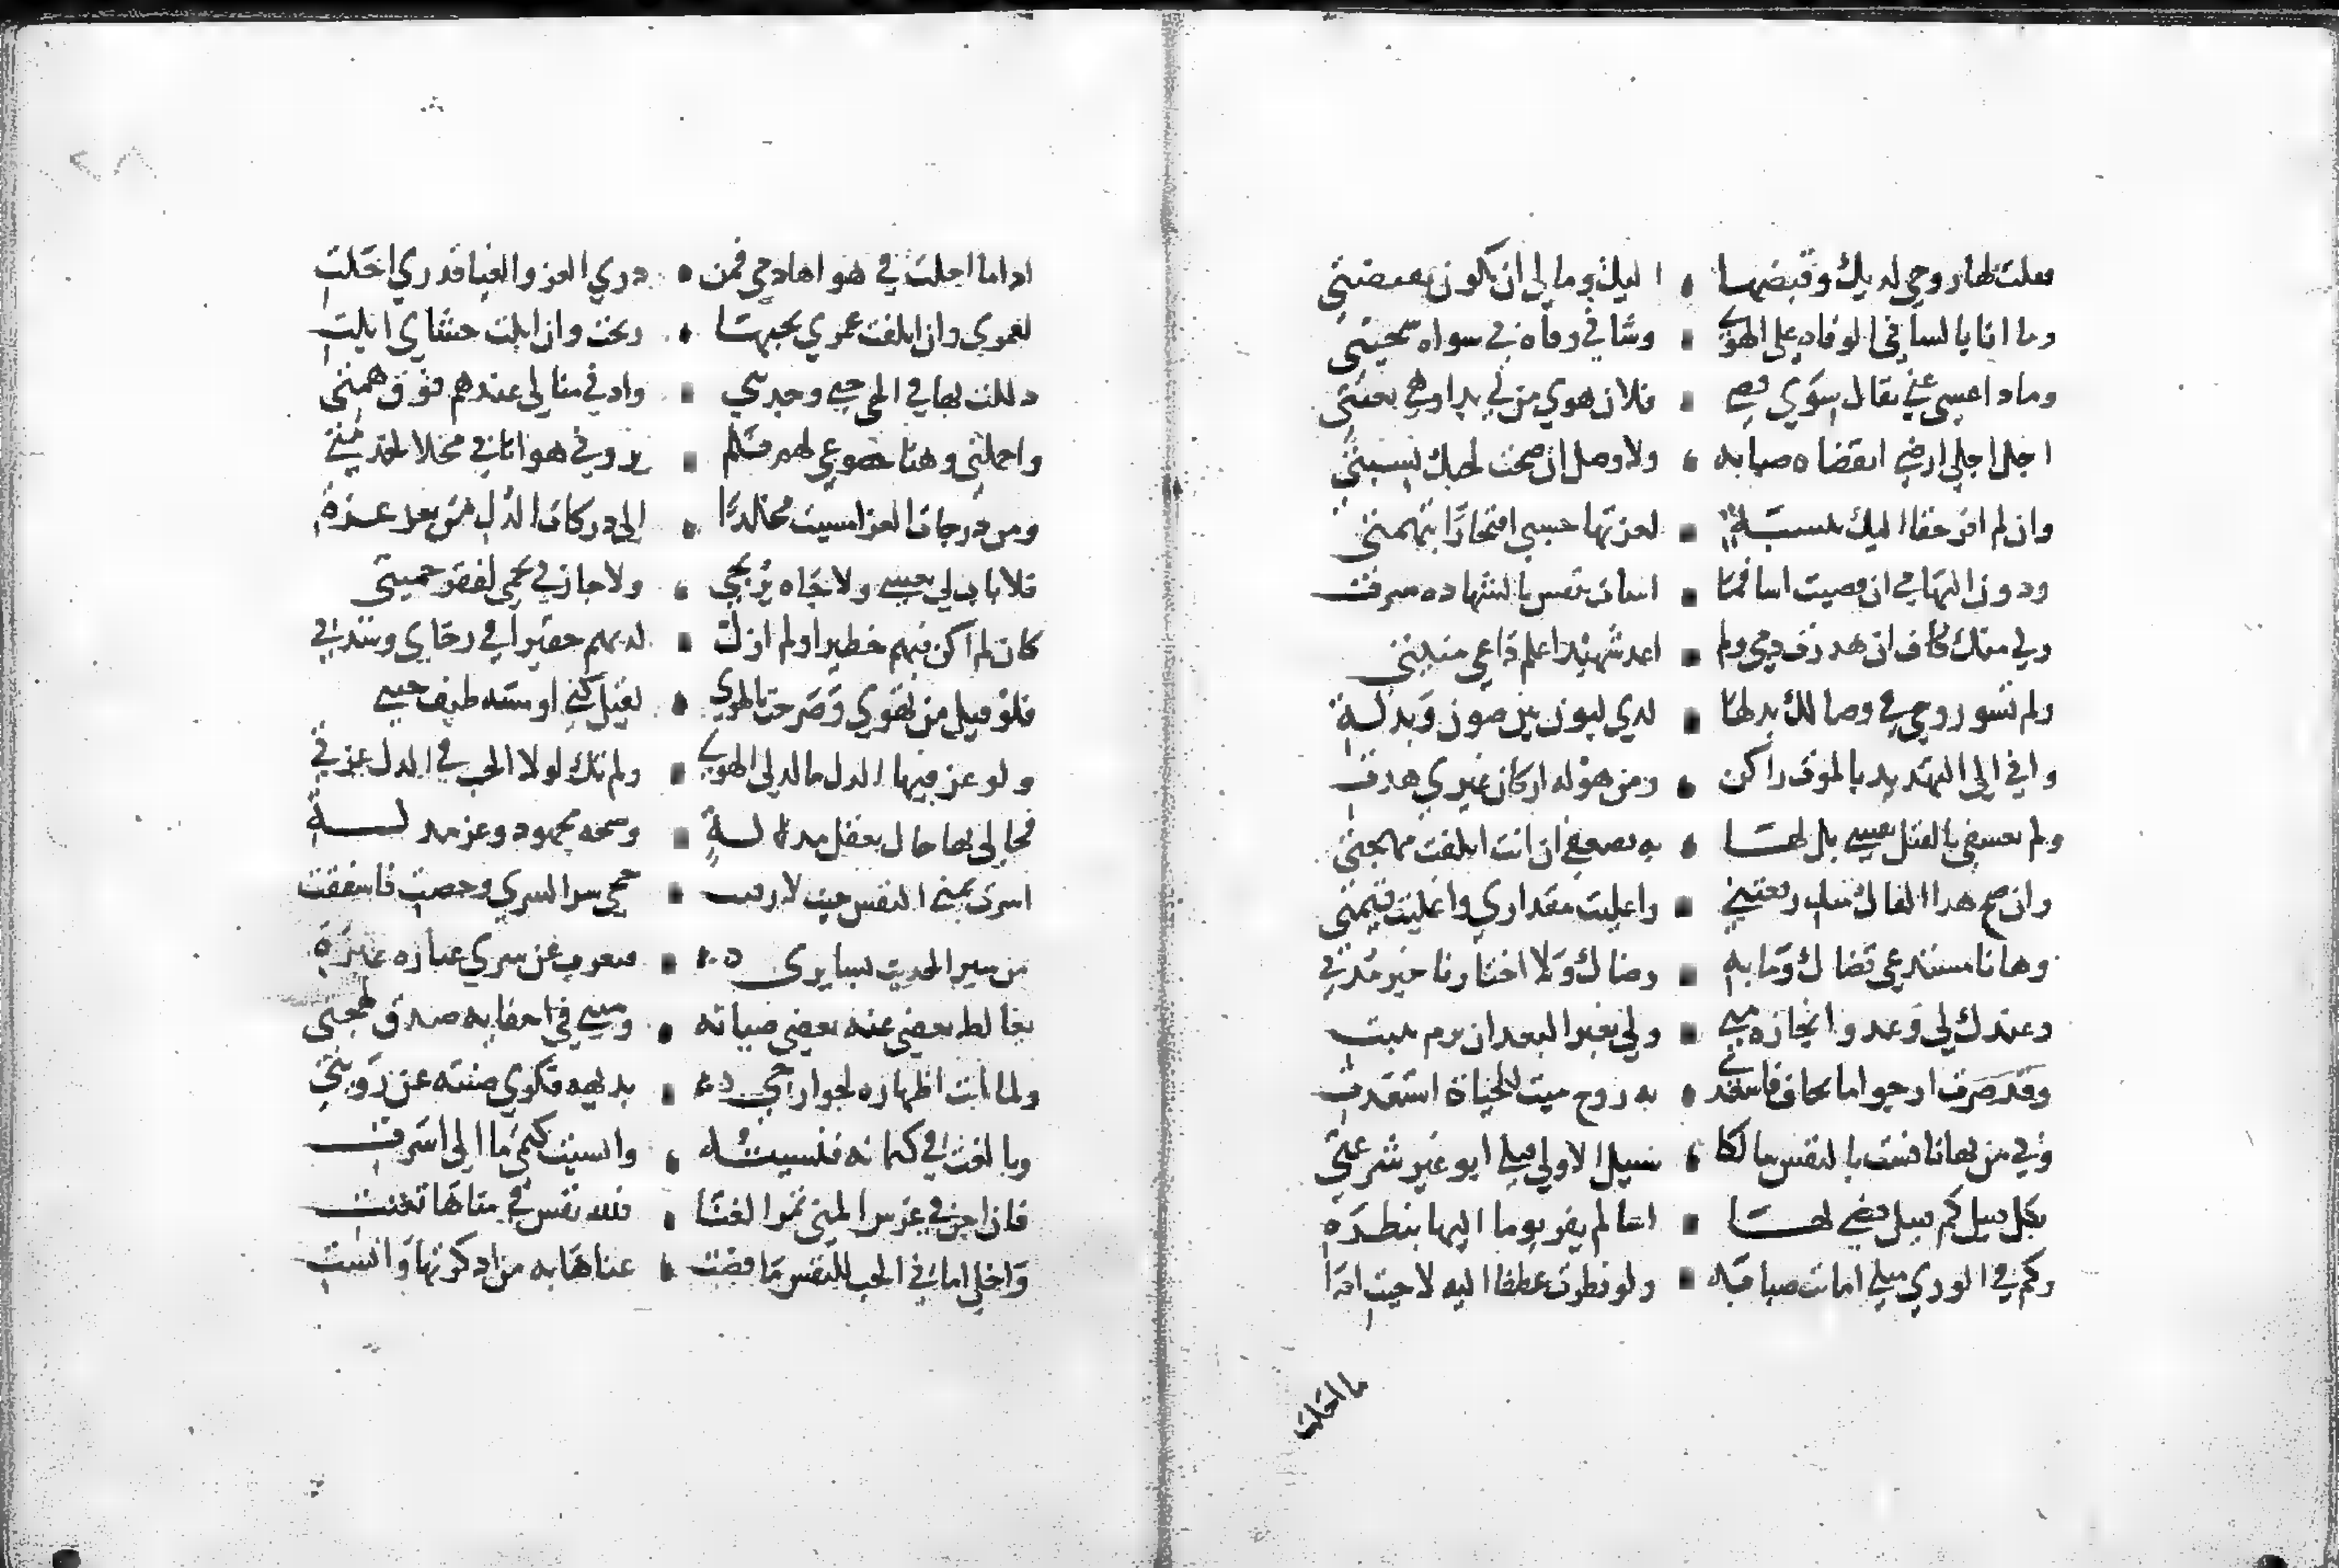 فقلت لها روحي لديك وقبضها • اليك وما لي ان تكون بقبضتي
وما انا بالساني الوفاه على الهوى • وشاني وفاه في سواه سجيتي
وماذا عسى عني يقال سوى قضي • فلان هوى من لي بدا وهي بغيتي
اجل اجلي ارضى انقضاه صبابه • ولا وصل ان صحت لحبك نسبتي
وان لم افز حقا اليك بنسبة • لعزتها حسبي افتخارًا بتهمتي
ودون اتهامي ان قضيت اسا فما • اسات بنفس بالشهاده سرت
ولي منك كاف ان هدرت دمي ولم • اعد شهيدا علم داعي منيتي
ولم تسو روحي في وصالك بذلها • لدي لبون بين صون وبذلة
واني الى التهديد بالموت راكن • ومن هوله اركان غيري هدت
ولم تعسفي بالقتل نفسي بل لها • به تسعفي ان انت اتلفت مهجتي
وان صح هذا الفال منك رفعتني • واعليت مقداري واغليت قيمتي
وها انا مستدع قضاك وما به • رضاك ولا اختار تاخير مدتي
وعيدك لي وعد وانجازه منى • ولي بغير البعد ان يرم يثبت
وقد صرت ارجو ما يخاف فاسعدي • به روح ميت للحياة استعدت
وفي من بها نافست بالنفس سالكا • سبيل الاولي قبلي ابو غير شرعتي
بكل قبيل كم قبيل قضى لها • اسا لم يفز يوما اليها بنظرة
وكم في الورى مثلي اماتت صبابه • ولو نظرت عطفا اليه لاحيت
ما احلت
اذا ما احلت في هواها دمي فمن • ذري العز والعليا قدري احلت
لعمري وان اتلفت عمري بحبها • ربحت وان ابلت حشاي ابلت
ذللت بها في الحي حتى وجدتني • وادنى منالي عندهم فوق همتي
واخملني وهنا خضوعي لهم فلم • يروني هوانا بي محلا لخدمتي
ومن درجات العز امسيت مخلدًا • الى دركات الذل من بعد عزة
فلا باب لي يغشى ولا جاه يرتجى • ولا جار لي يحمى لفقد حميتي
كان لم اكن فيهم خطيرا ولم ازل • لديهم حقيرا في رخاي وشدتي
فلو قيل من تهوى وصرحت بالهوى • لقيل كني او مسه طيف جنة
ولو عز فيها الذل ما لذ لي الهوى • ولم تك لولا الحب في الذل عزتي
فحالي بها حال بعقل مدله • وصحة مجهود وعز مذلة
اسرت تمني النفس حيث لا رقيب • حجى سرا لسري وخصت فاشفقت
من سير الحديث بسايري • فتعرب عن سري عبارة عبرة
يغالط بعضي عنه بعضي صيانه • وميني في اخفايه صدق لهجتي
ولما ابت اظهاره لجوانحي • بديهة فكري صنته عن رويتي
وبالغت في كتمانه فنسيته • وانسيت كتمي ما الي اسرت
فان اجن في غرس المنى ثمر العنا • فلله نفس في مناها تعنت
واحلى اماني الحب للنفس ما قضت • عناها به من اذكرتها وانست